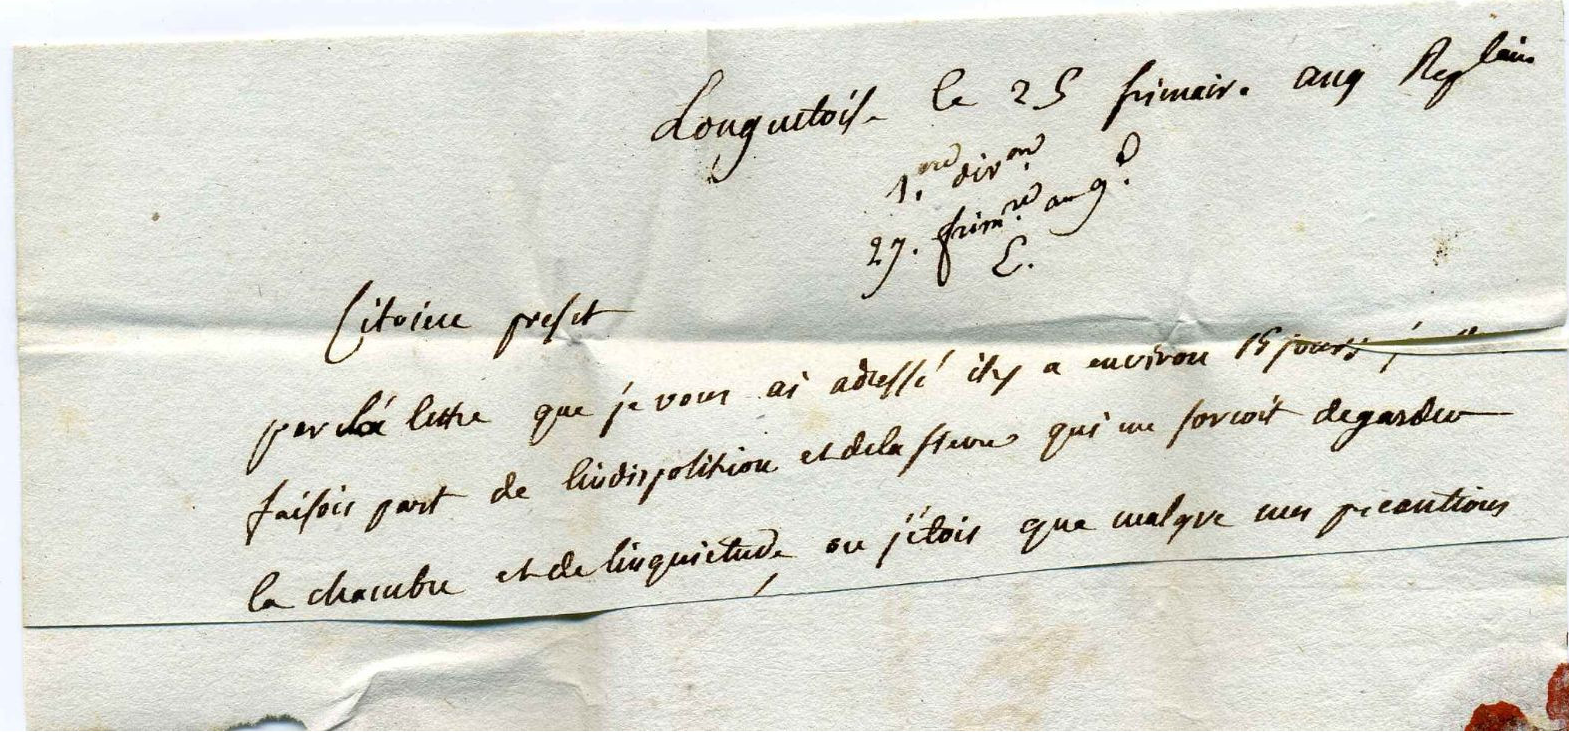 Longuetoise le 25 frimaire an 9 Replain
1.ere div.on
27. frim.re an 9.
Citoien prefet
par la lettre que je vous ai adressé il y a environ 15 jours
faisois part de lindisposition et de la fievre qui me forcoit de garder
la chambre et de linquietude ou j'étois que malgre mes precautions